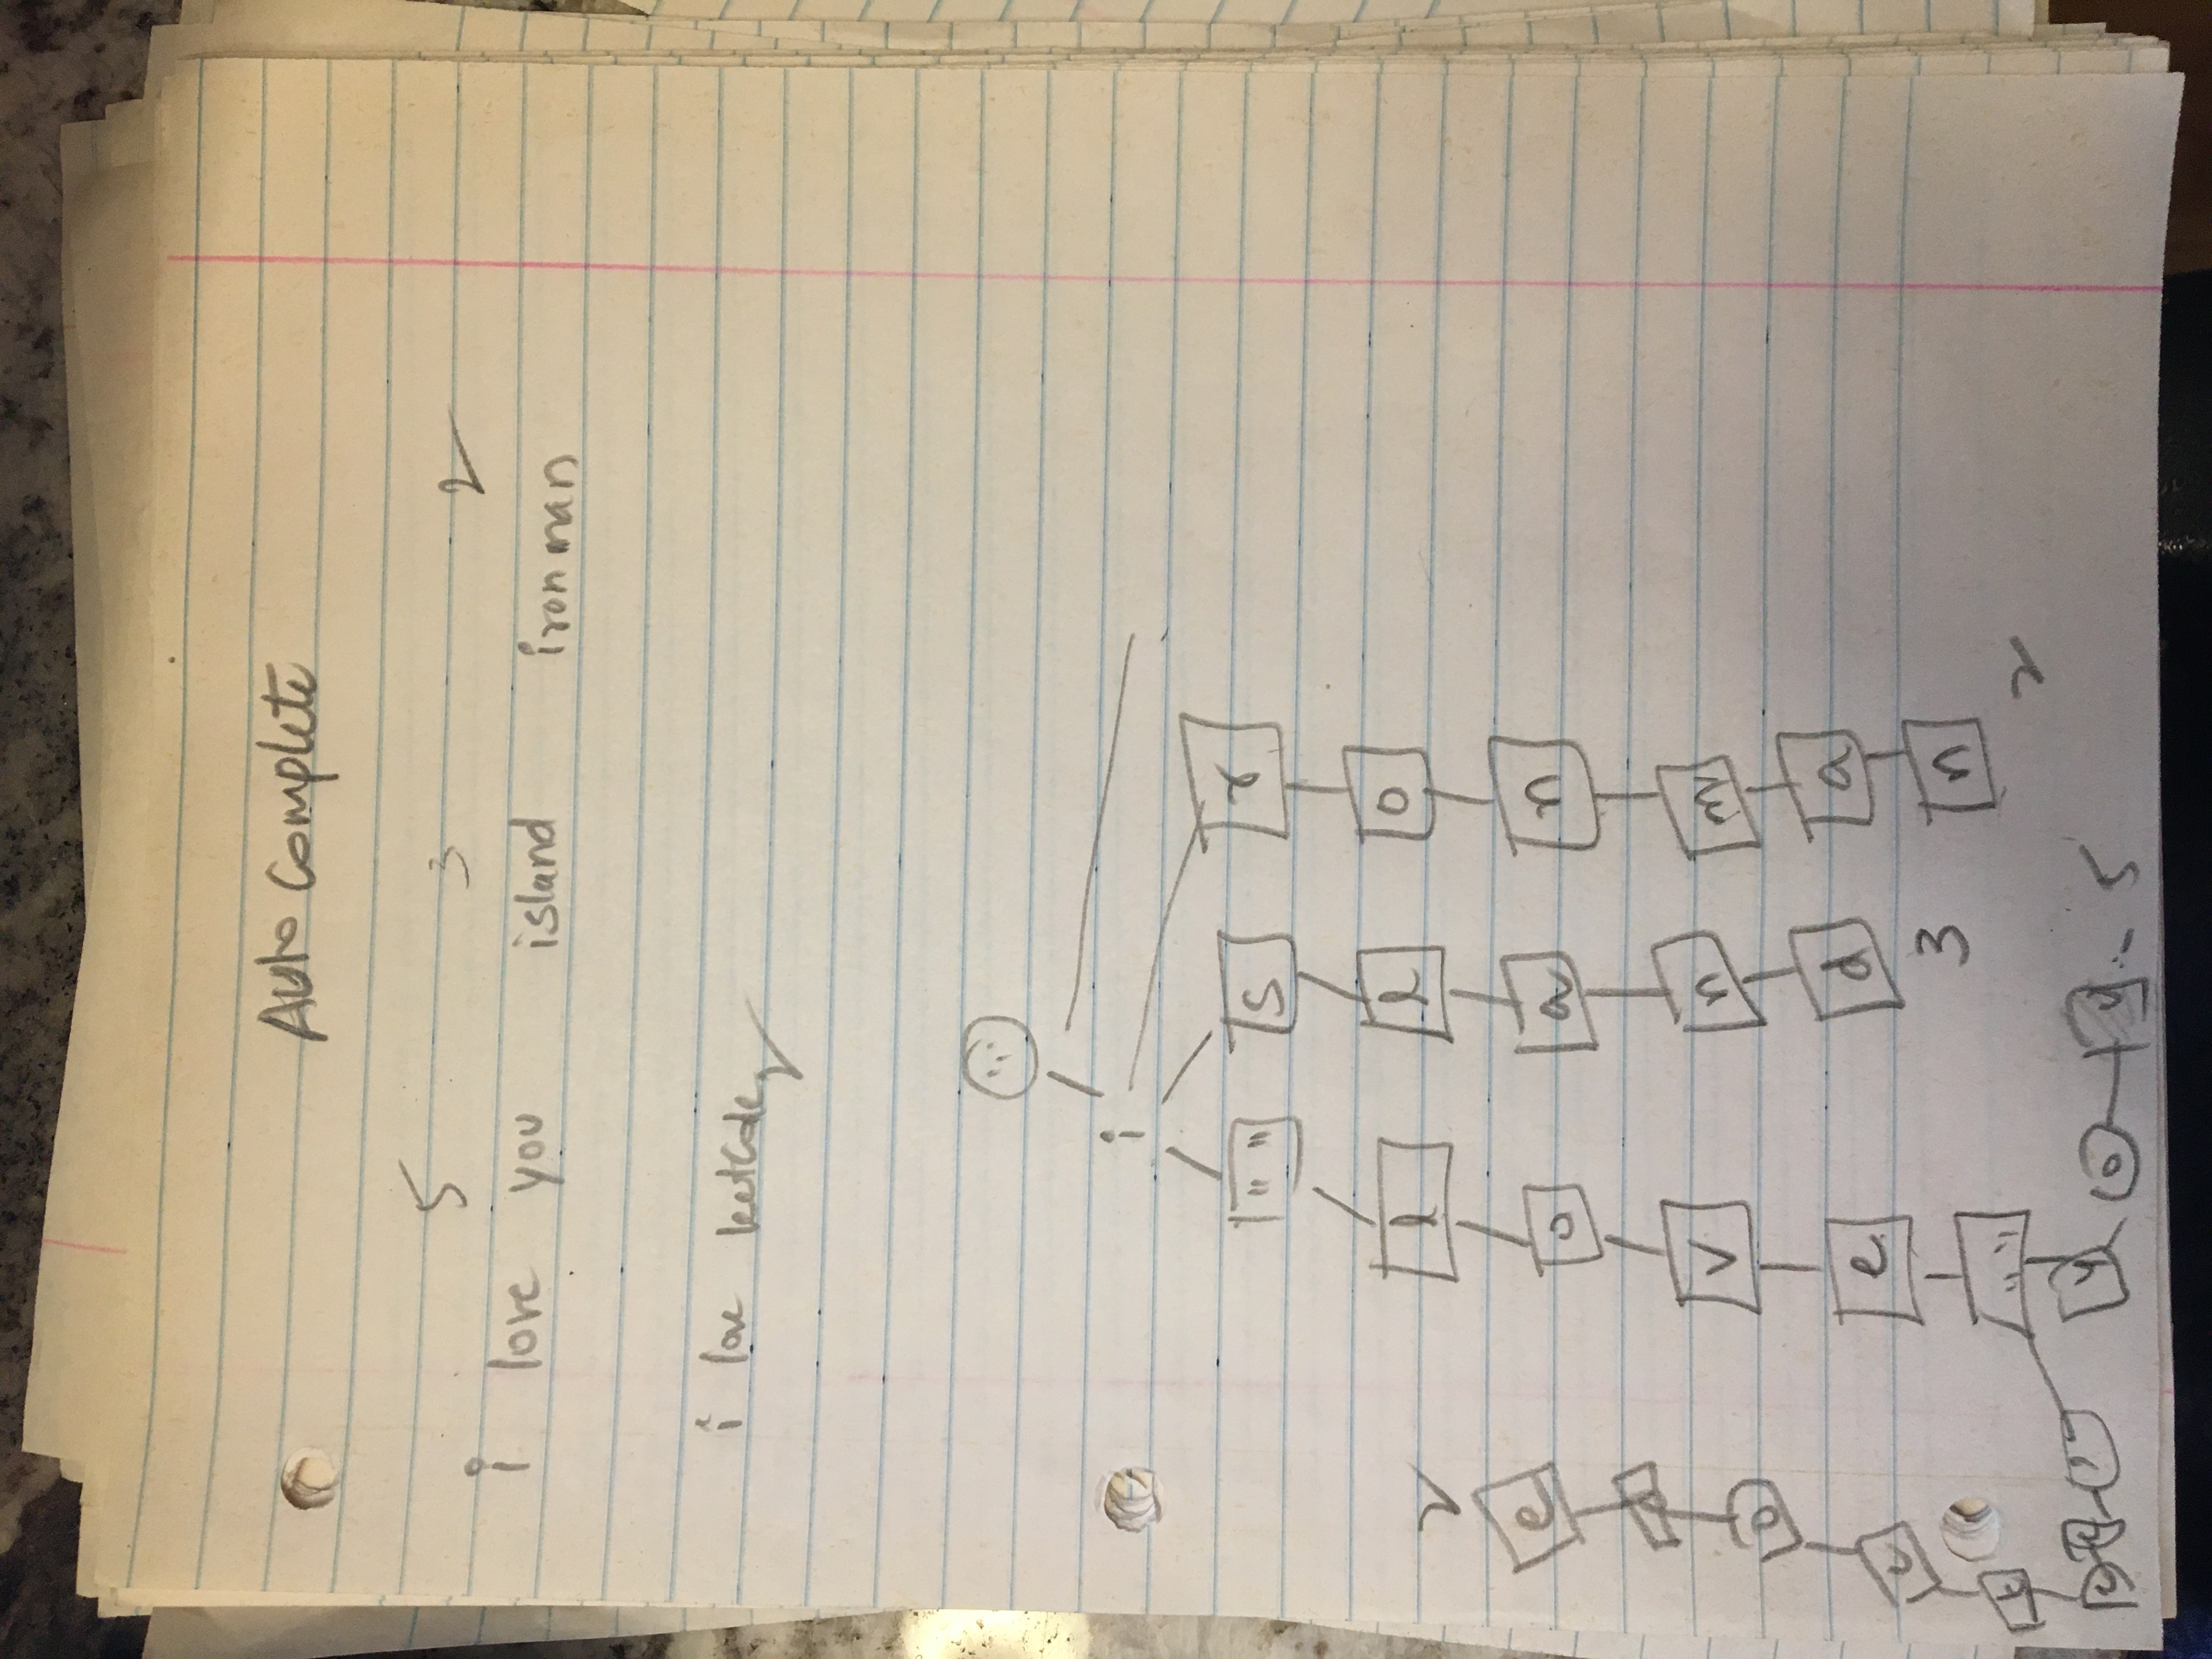 Auto Complete
5 3 2
i love you island ironman
i love leetcode 2
i
" " s r
l l o
2
o a n
e
v n m
o
e d a
c
3 n
t
" " 2
y o u 5